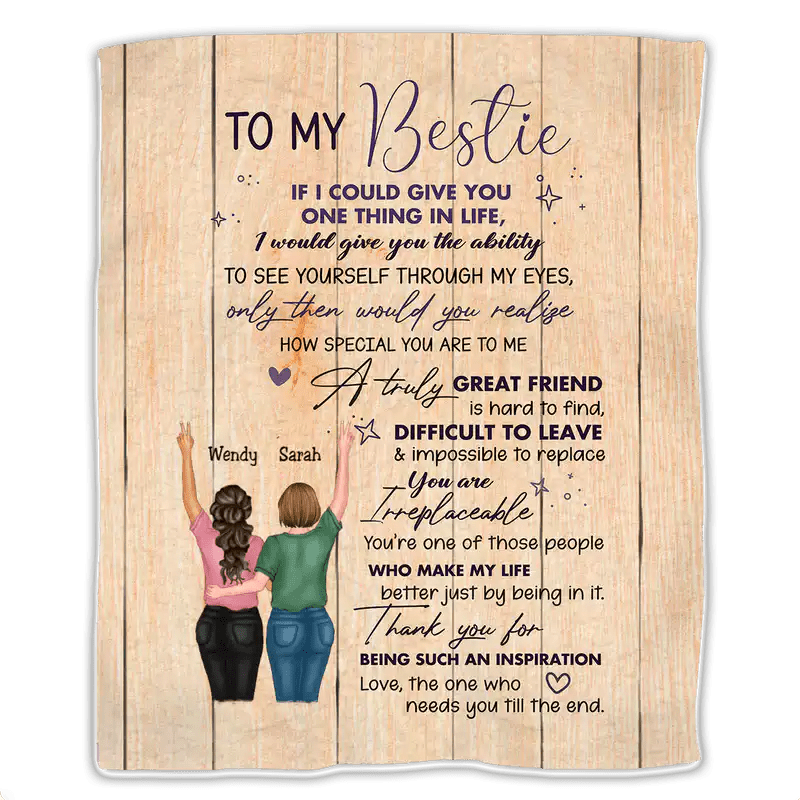 TO MY Bestie
IF I COULD GIVE YOU
ONE THING IN LIFE,
I would give you the ability
TO SEE YOURSELF THROUGH MY EYES,
only then would you realize
HOW SPECIAL YOU ARE TO ME
A truly GREAT FRIEND
is hard to find,
DIFFICULT TO LEAVE
& impossible to replace
Wendy Sarah
You are
Irreplaceable
You're one of those people
WHO MAKE MY LIFE
better just by being in it.
Thank you for
BEING SUCH AN INSPIRATION
Love, the one who
needs you till the end.